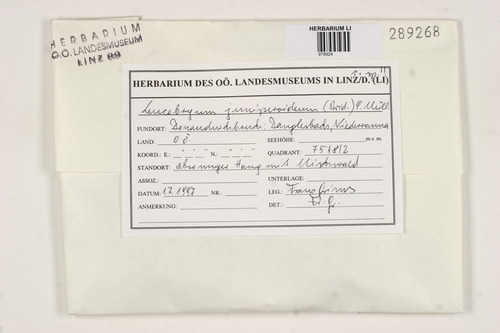 HERBARIUM
O.Ö. LANDESMUSEUM
LINZ
HERBARIUM LI
289268
HERBARIUM DES OÖ. LANDESMUSEUMS IN LINZ/D. (LI)
Leucobryum juniperoideum (Brid.) C. Müll.
FUNDORT: Donaudurchbruch: Danglbach, Niederranna
LAND: OÖ SEEHÖHE: m s. m.
KOORD.: E: ° ' " N: ° ' " QUADRANT: 7548/2
STANDORT: abschüssiger Hang mit Mischwald
ASSOZ.: UNTERLAGE:
DATUM: 1.7.1997 LEG.: Franz Grims
ANMERKUNG: DET.: F. G.